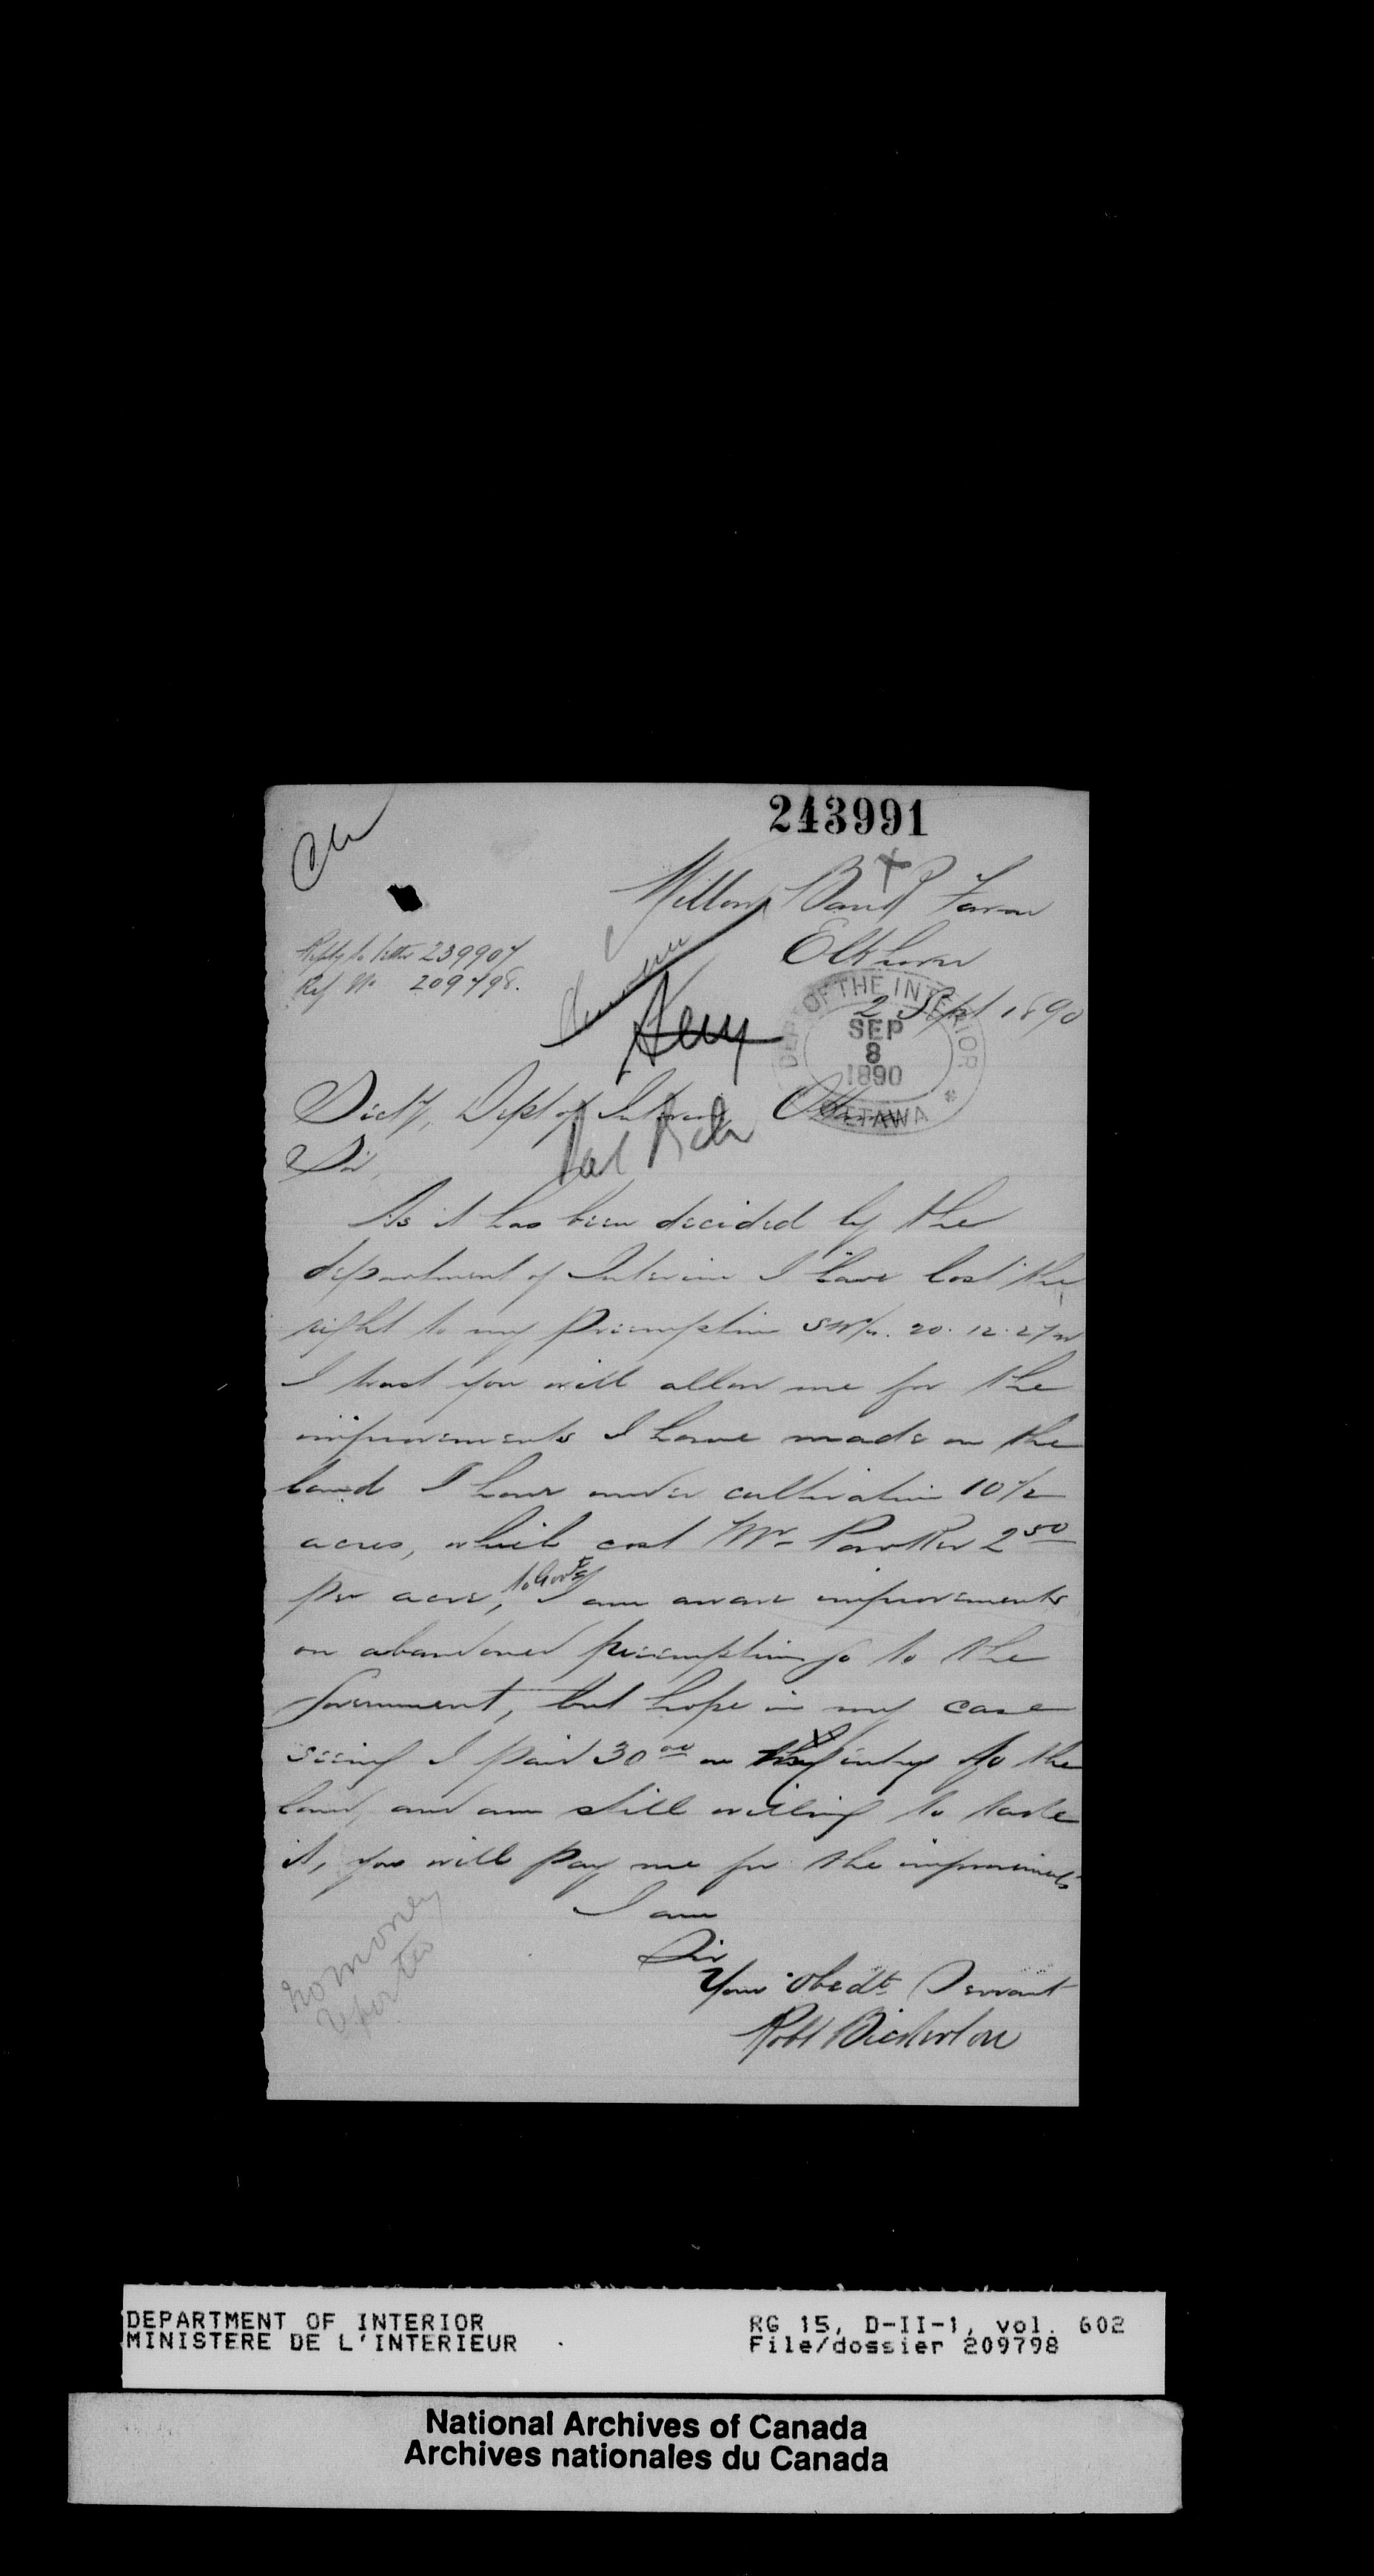 243991
Willow Bank Farm
Elkhorn
2 Sept 1890
Reply to letter 239907
Ref No 209798.
DEPT OF THE INTERIOR
SEP
8
1890
OTTAWA
Secty, Dept of Interior Ottawa
Sir,
As it has been decided by the
department of Interior I have lost the
right to my Preemption SW¼. 20. 12. 27 w
I trust you will allow me for the
improvements I have made on the
land I have under cultivation 10½
acres, which cost Mr Parker 2 50
per acre, I am aware improvements
on abandoned preemption go to the
Government, but hope in my case
seeing I paid 30 00 on entry to the
land, and am still willing to take
it, you will pay me for the improvements
I am
Sir
Your Obedt Servant
Robt Bickerton
no money
reported
DEPARTMENT OF INTERIOR
MINISTERE DE L'INTERIEUR
RG 15, D-II-1, vol. 602
File/dossier 209798
National Archives of Canada
Archives nationales du Canada